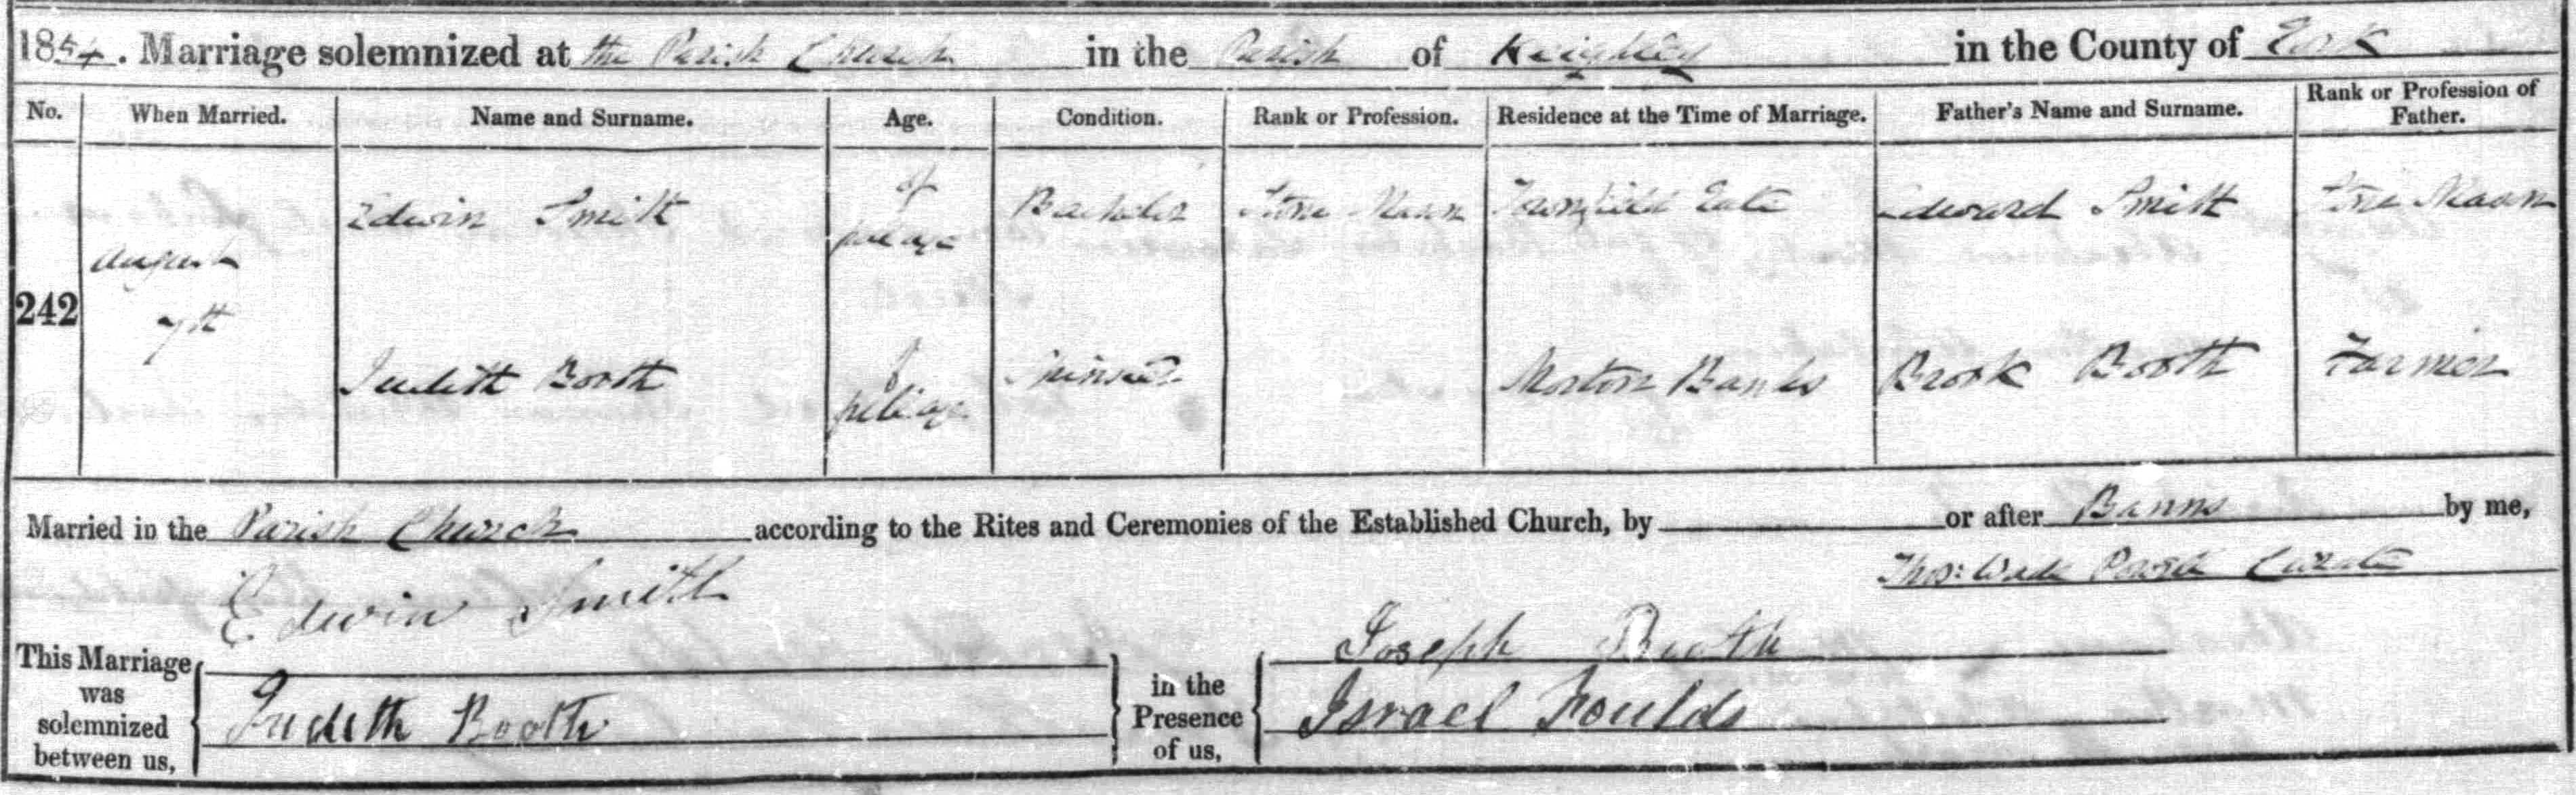 1854. Marriage solemnized at the Parish Church in the Parish of Keighley in the County of York
No. When Married. Name and Surname. Age. Condition. Rank or Profession. Residence at the Time of Marriage. Father's Name and Surname. Rank or Profession of Father.
242 August 7th
Edwin Smith of full age Bachelor Stone Mason Townfield Gate Edward Smith Stone Mason
Judith Booth of full age Spinster Morton Banks Brook Booth Farmer
Married in the Parish Church according to the Rites and Ceremonies of the Established Church, by or after Banns by me,
Thos: Curate
This Marriage was solemnized between us,
Edwin Smith
Judith Booth
in the Presence of us,
Joseph Booth
Israel Foulds